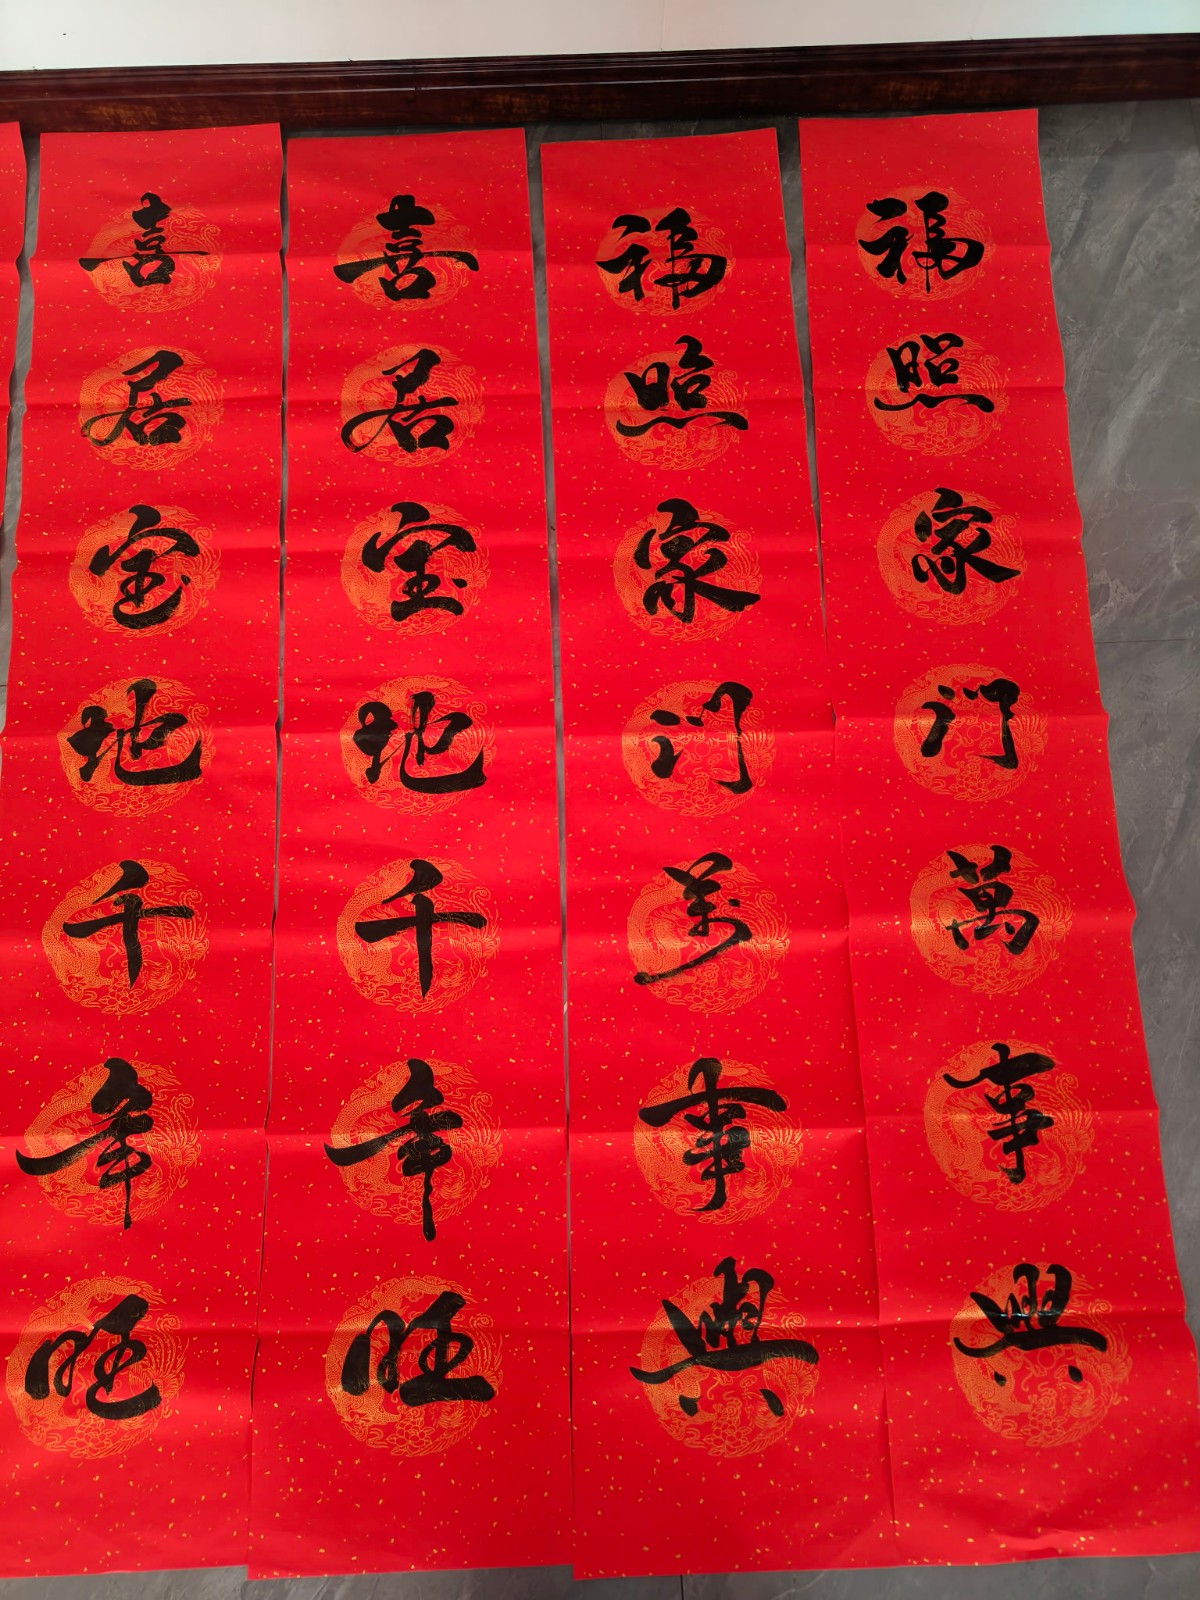 喜居宝地千年旺
喜居宝地千年旺
福照家门万事興
福照家门萬事興